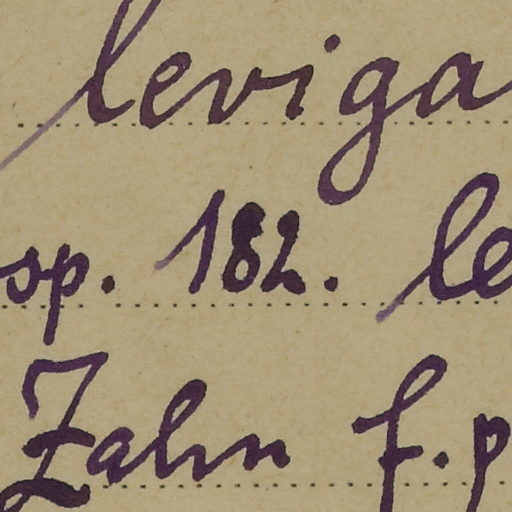 leviga
ssp. 182. le
Zahn f. p